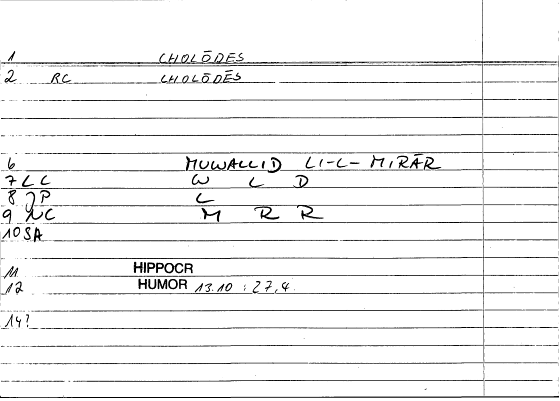 1 CHOLŌDES
2 RC CHOLŌDĒS
6 MUWALLID LI-L-MIRĀR
7 LC W L D
8 JP L
9 NC M R R
10 SA
11 HIPPOCR
12 HUMOR 13.10 : 27,4.
14?